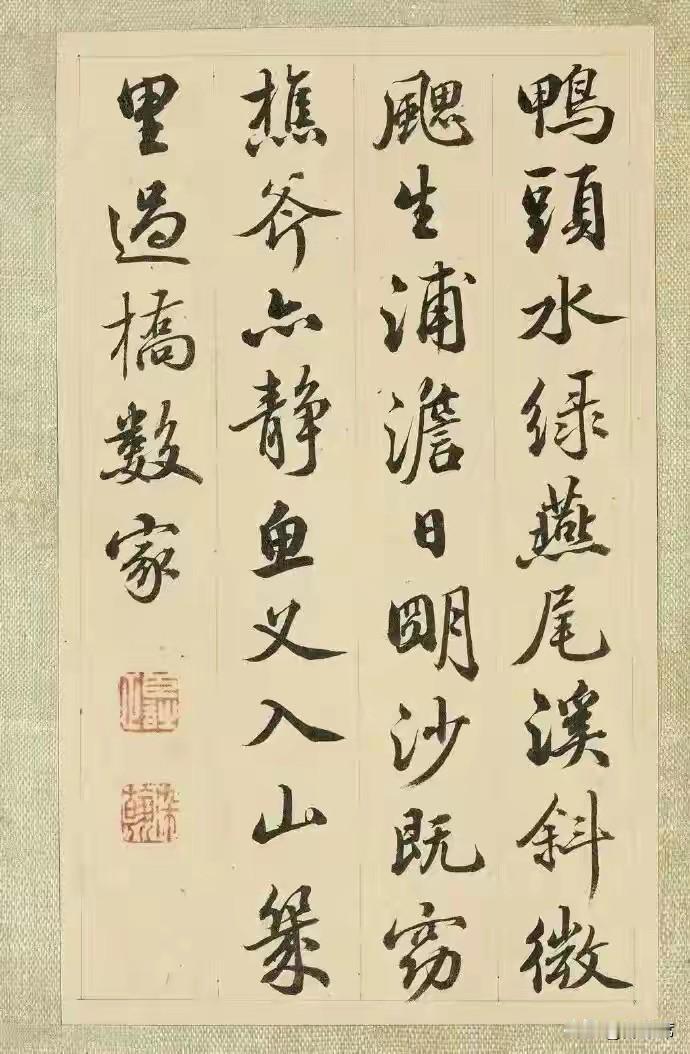 鴨頭水緑燕尾溪斜微
颸生浦澹日明沙既窈
樵斧亦静魚叉入山幾
里過橋數家